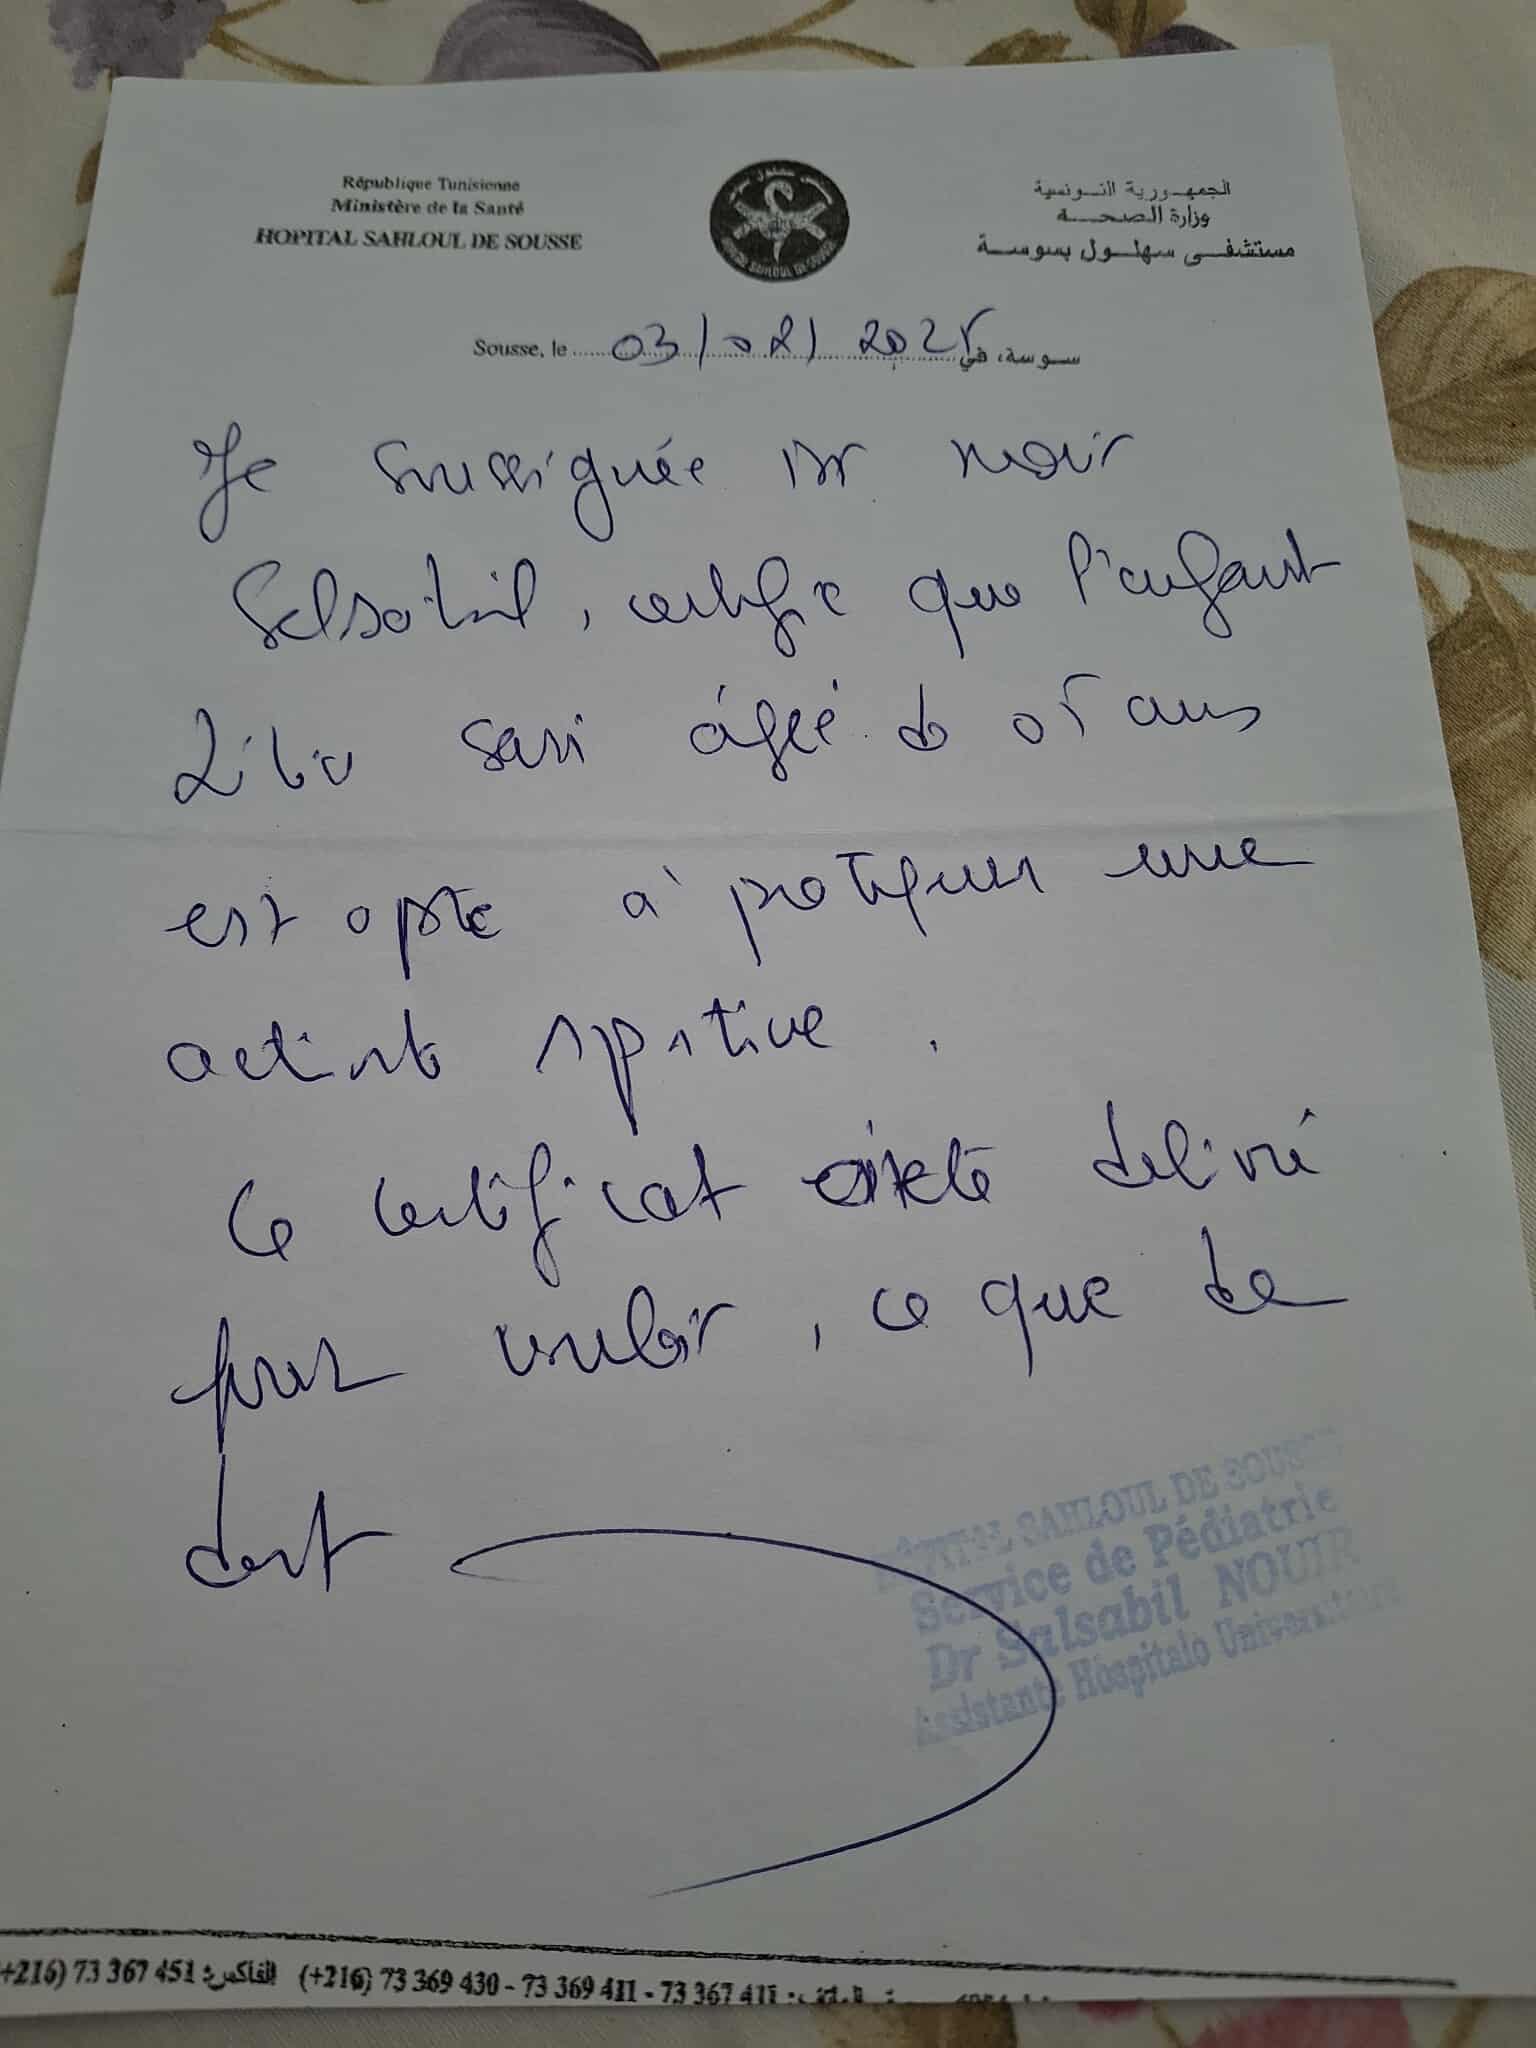 République Tunisienne
Ministère de la Santé
HOPITAL SAHLOUL DE SOUSSE
الجمهورية التونسية
وزارة الصحة
مستشفى سهلول بسوسة
Sousse, le 03/02/2025 سوسة، في
Je soussignée Dr nouir
Salsabil, certifie que l'enfant
sari âgée de 05 ans
est apte à pratiquer une
activité sportive.
Ce certificat a été délivré
pour valoir, ce que de
droit
HÔPITAL SAHLOUL DE SOUSSE
Service de Pédiatrie
Dr Salsabil NOUIR
Assistante Hospitalo Universitaire
+216) 73 367 451 الفاكس: (+216) 73 369 430 - 73 369 411 - 73 367 411 الهاتف: